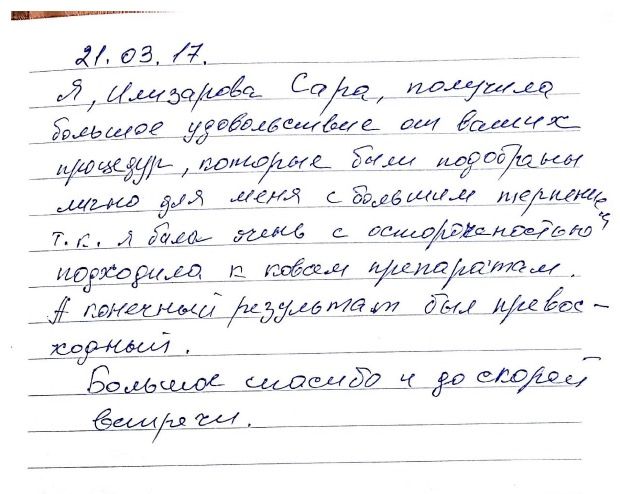 21.03.17.
Я, Илизарова Сара, получила
большое удовольствие от ваших
процедур, которые были подобраны
лично для меня с большим терпением,
т.к. я была очень с осторожностью
подходила к новым препаратам.
А конечный результат был превос-
ходный.
Большое спасибо и до скорой
встречи.